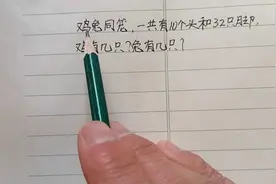 鸡兔同笼,一共有10个头和32只脚,
鸡有几只?兔有几只?